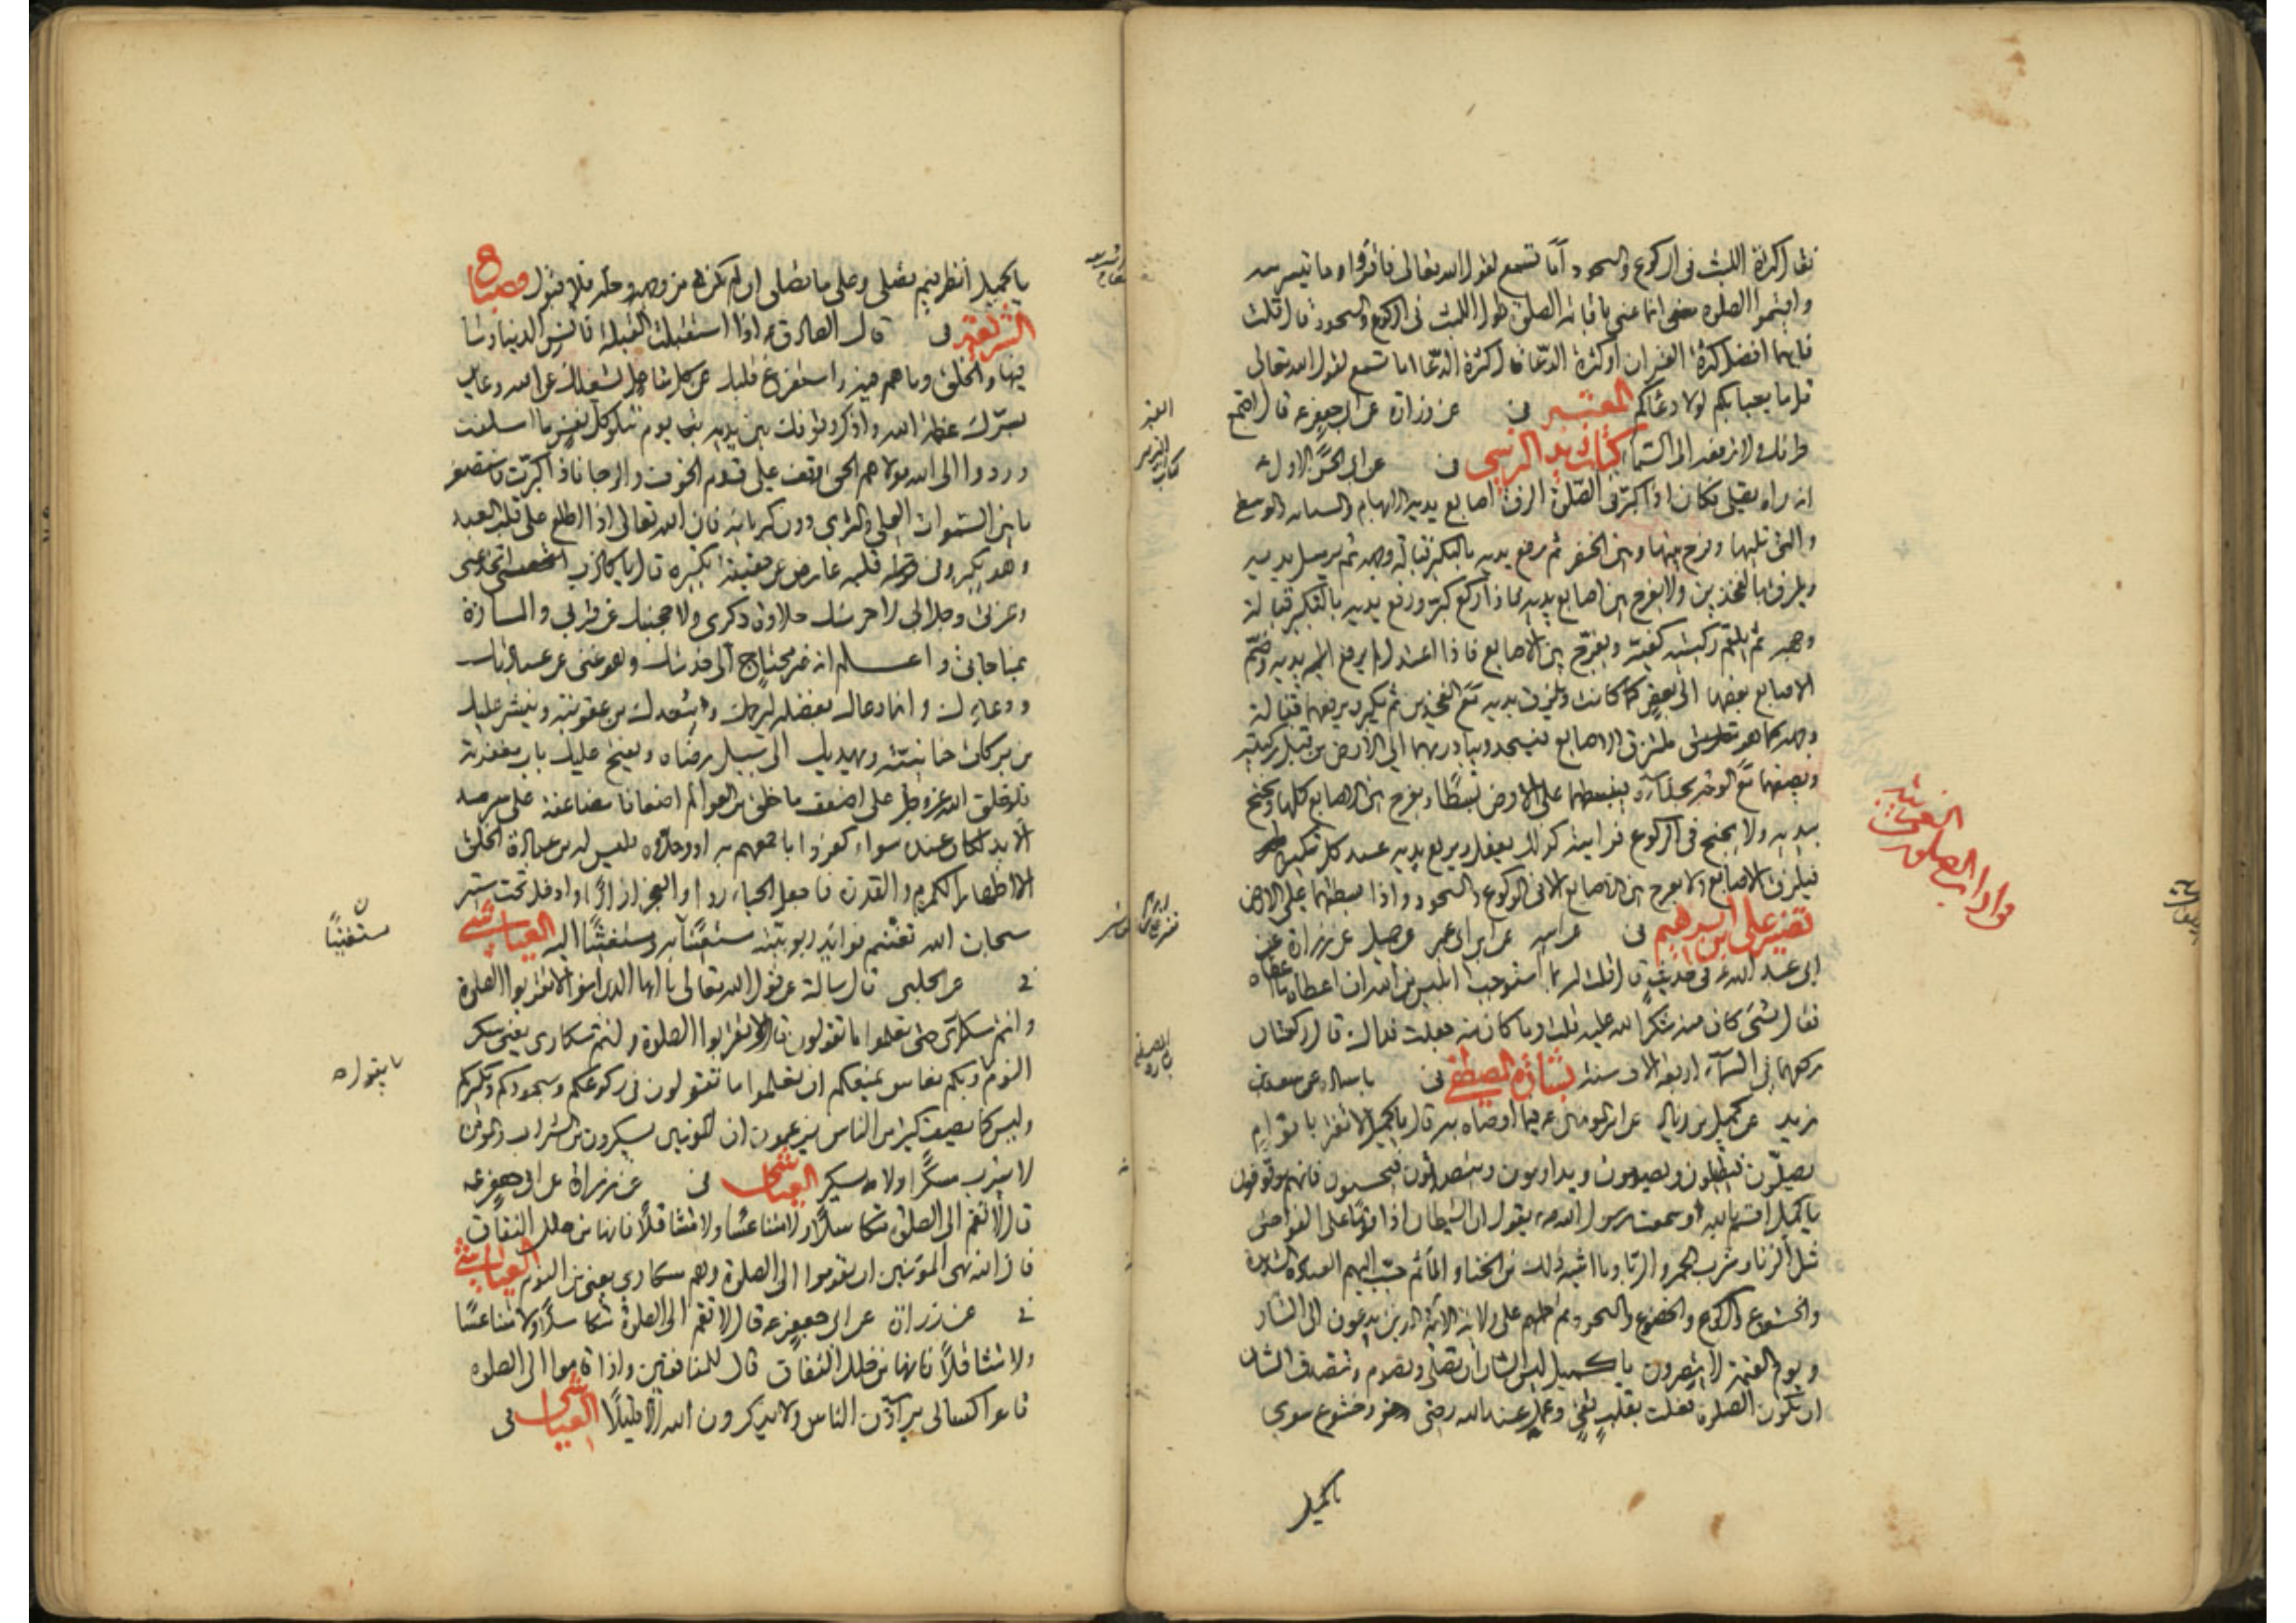 فقال كثرة اللبث في الركوع والسجود أما تسمع لقول الله تعالى فاقرؤا ما تيسر منه
واقيموا الصلوة انما عنى باقامة الصلوة طول اللبث في الركوع والسجود قال قلت
فايهما افضل كثرة القران او كثرة الدعا قال كثرة الدعا اما تسمع لقول الله تعالى
قل ما يعبا بكم لولا دعاؤكم المعتبر عن زرارة عن ابي جعفر ع قال اجمع
طرفك ولا ترفعه الى السماء كتاب زيد النرسي عن ابي الحسن الاول ع
انه راه يصلي فكان اذا كبر في الصلوة الزق اصابع يديه الابهام والسبابة والوسطى
والتي تليها وفرج بينها وبين الخنصر ثم يرفع يديه بالتكبير قبالة وجهه ثم يرسل يديه
ويلزق بالفخذين ولا يفرج بين اصابع يديه فاذا ركع كبر ورفع يديه بالتكبير قبالة
وجهه ثم يلقم ركبتيه كفيه ويفرج بين الاصابع فاذا اعتدل لم يرفع يديه وضم
الاصابع بعضها الى بعض كما كانت ويلزق يديه مع الفخذين ثم يكبر ويرفعهما قبالة
وجهه كما هو ملتزق الاصابع فيسجد ويبادر بهما الى الارض من قبل ركبتيه
ويضعهما مع الوجه بحذائه ويبسطهما على الارض بسطا ويفرج بين الاصابع كلها ويجنح
بيديه ولا يجنح في الركوع فرايته كذلك يفعل ويرفع يديه عند كل تكبيرة
فيلزق الاصابع ولا يفرج بين الاصابع الا في الركوع والسجود واذا بسطهما على الارض
تفسير علي بن ابراهيم عن ابيه عن ابن ابي عمير عن جميل عن زرارة عن
ابي عبد الله ع في حديث قال قلت له بما استوجب ابليس من الله ان اعطاه ما اعطاه
فقال بشئ كان منه شكره الله عليه قلت وما كان منه جعلت فداك قال ركعتان
ركعهما في السماء اربعة الاف سنة بشارة المصطفى باسناده عن سعيد بن
زيد عن كميل بن زياد عن امير المومنين ع فيما اوصاه به قال يا كميل لا تغتر باقوام
يصلون فيطيلون ويصومون ويداومون ويتصدقون فيحسبون انهم موقوفون
يا كميل اقسم بالله لسمعت رسول الله ص يقول ان الشيطان اذا حمل قوما على الفواحش
مثل الزنا وشرب الخمر والربا وما اشبه ذلك من الخنا والمآثم حبب اليهم العبادة الشديدة
والخشوع والركوع والخضوع والسجود ثم حملهم على ولاية الائمة الذين يدعون الى النار
ويوم القيمة لا ينصرون يا كميل ليس الشان ان تصلي وتصوم وتتصدق الشان
ان تكون الصلوة فعلت بقلب نقي وعمل عند الله رضي وخشوع سوي
يا كميل
الفرايض
واداب الصلوة
يا كميل انظر فيم تصلي وعلى ما تصلي ان لم يكن من وجهه وحله فلا قبول مصباح
الشريعة قال الصادق ع اذا استقبلت القبلة فآيس الدنيا وما
فيها والخلق وما هم فيه واستفرغ قلبك عن كل شاغل يشغلك عن الله وعاين
بسرك عظمة الله واذكر وقوفك بين يديه يوم تبلو كل نفس ما اسلفت
وردوا الى الله مولاهم الحق وقف على قدم الخوف والرجا فاذا كبرت فاستصغر
ما بين السموات العلى والثرى دون كبريائه فان الله تعالى اذا اطلع على قلب العبد
وهو يكبر وفي قلبه عارض عن حقيقة تكبيره قال يا كاذب اتخدعني
وعزتي وجلالي لاحرمنك حلاوة ذكري ولاحجبنك عن قربي والمسارة
بمناجاتي واعلم انه غير محتاج الى خدمتك وهو غني عن عبادتك
ودعائك وانما دعاك بفضله ليرحمك ويبعدك من عقوبته وينشر عليك
من بركات حنانيته ويهديك الى سبيل رضاه ويفتح عليك باب مغفرته
فلو خلق الله عز وجل على ضعف ما خلق من العوالم اضعافا مضاعفة على سرمد
الابد لكان عنده سواء كفروا باجمعهم به او وحدوه فليس له من عبادة الخلق
الا اظهار الكرم والقدرة فاجعل الحياء رداء والعجز ازارا وادخل تحت ستر
سلطان الله تغتنم فوائد ربوبيته مستعينا به ومستغيثا اليه العياشي
عن الحلبي قال سالته عن قول الله تعالى يا ايها الذين امنوا لا تقربوا الصلوة
وانتم سكارى حتى تعلموا ما تقولون قال لا تقربوا الصلوة وانتم سكارى يعني سكر
النوم وبكم نعاس يمنعكم ان تعلموا ما تقولون في ركوعكم وسجودكم وتكبيركم
وليس كما يصف كثير من الناس يزعمون ان المؤمنين يسكرون من الشراب والمؤمن
لا يشرب مسكرا ولا يسكر العياشي عن زرارة عن ابي جعفر ع
قال لا تقم الى الصلوة متكاسلا ولا متناعسا ولا متثاقلا فانها من خلل النفاق
فان الله نهى المؤمنين ان يقوموا الى الصلوة وهم سكارى يعني من النوم العياشي
عن زرارة عن ابي جعفر ع قال لا تقم الى الصلوة متكاسلا ولا متناعسا
ولا متثاقلا فانها من خلل النفاق قال للمنافقين واذا قاموا الى الصلوة
قاموا كسالى يراؤن الناس ولا يذكرون الله الا قليلا العياشي